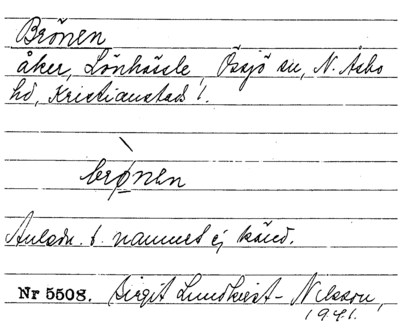 Brönen
åker, Lönhässle, Össjö sn, N. Åsbo
hd, Kristianstads l.
brø̀nen
Anledn. t. namnet ej känd.
Nr 5508. Birgit Lundkvist-Nilsson,
1941.